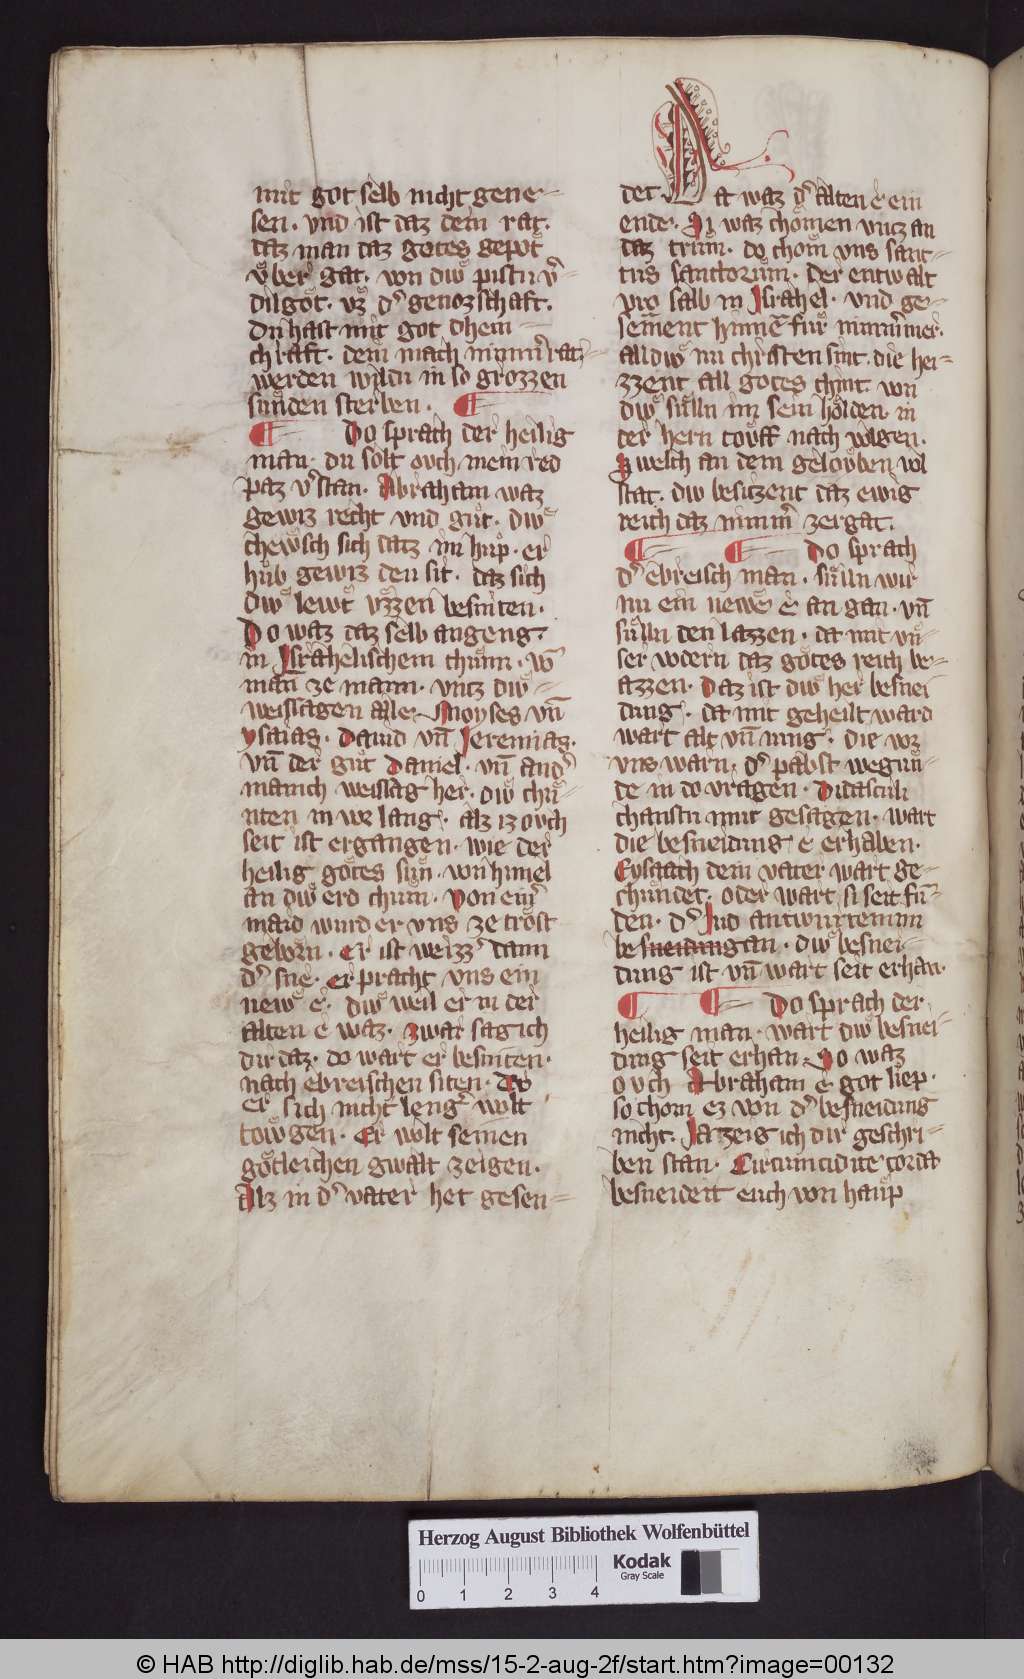 mit got selb nicht gene-
sen · vnd ist daz dem rat ·
daz man daz gotes gepot
vͤber gat · von diwͤ pistu v̾-
dilgot · vz d̾ genozschaft ·
Du hast mit got dhein
chraft · dein mach nimm̾ rat
werden wildu in so grozzen
sunden sterben ·
Do sprach der heilig
man · du solt ovch mein red
paz v̾stan · Abraham waz
gewiz recht vnd guͦt · diwͤ
chewͤsch sich datz im huͦp · er
huͦb gewiz den sit · daz sich
Diwͤ lewtͤ vzzen besniten ·
Do waz daz selb angeng
in Israhelischem chuͤnn · vō
mañ ze mann · vntz diwͤ
weissagen alle · Moyses vn̄
ysaias · Dauid vn̄ Jeremias ·
vn̄ der guͦt Daniel · vn̄ and̾
manich weissag her · diwͤ chuͤ-
nten in vor lang · alz iz ovch
seit ist ergangen · wie der
heilig gotes sun · von himel
an diwͤ erd chum · von ein̾
maid wurd er vns ze trost
geborn · Er ist weizz̾ dann
d̾ sne · er pracht vns ein
newͤ e · diwͤ weil er in der
alten e waz · zwar sag ich
dir daz · do wart er besniten ·
nach ebreischen siten · do
er sich nicht leng̾ wolt
towͤgen · Er wolt seinen
gotleichen gwalt zeigen ·
Alz in d̾ vater het gesen-
det · Da waz d̾ alten e ein
ende · Si waz chomen vntz an
daz trum · do chom vns sanc-
tus sanctorum · der entwalt
vro salb in Israhel · vnd ge-
sement hinne fuͤr nimm̾mer ·
all diwͤ nu christen sint · die hei-
zzent all gotes chint · von
diwͤ suͤlln im sein holden in
der hern touff nach volgen ·
Swelch an dem gelouben vol
stat · diw besitzent daz ewig
reich daz nimm̾ zergat ·
Do sprach
d̾ ebreisch man · suͤlln wir
nu ein newͤ e an gan · vn̄
suͤlln den lazzen · da mit vn-
ser vodern daz gotes reich be-
sazzen · Daz ist diwͤ her besnei
dung · da mit geheilt ward
wart alt vn̄ iung · die vor
vns warn · d̾ pabst wegun-
de in do vragen · Didasculi
chanstu mir gesagen · wart
die besneidung e erhaben ·
Eysaach dem vater wart ge-
chundet · oder wart si seit fun-
den · d̾ Jud antwurt im
besneidungan · diwͤ besnei-
dung ist vn̄ wart seit erhan ·
Do sprach der
heilig man · wart diwͤ besnei-
dung seit erhan · So waz
ovch Abraham e got liep ·
so chom ez von d̾ besneidung
nicht · Ja zeig ich dir geschri-
ben stan · Circumcidite corda
besneideit euch von haup
Herzog August Bibliothek Wolfenbüttel
0 1 2 3 4
Kodak
Gray Scale
© HAB http://diglib.hab.de/mss/15-2-aug-2f/start.htm?image=00132